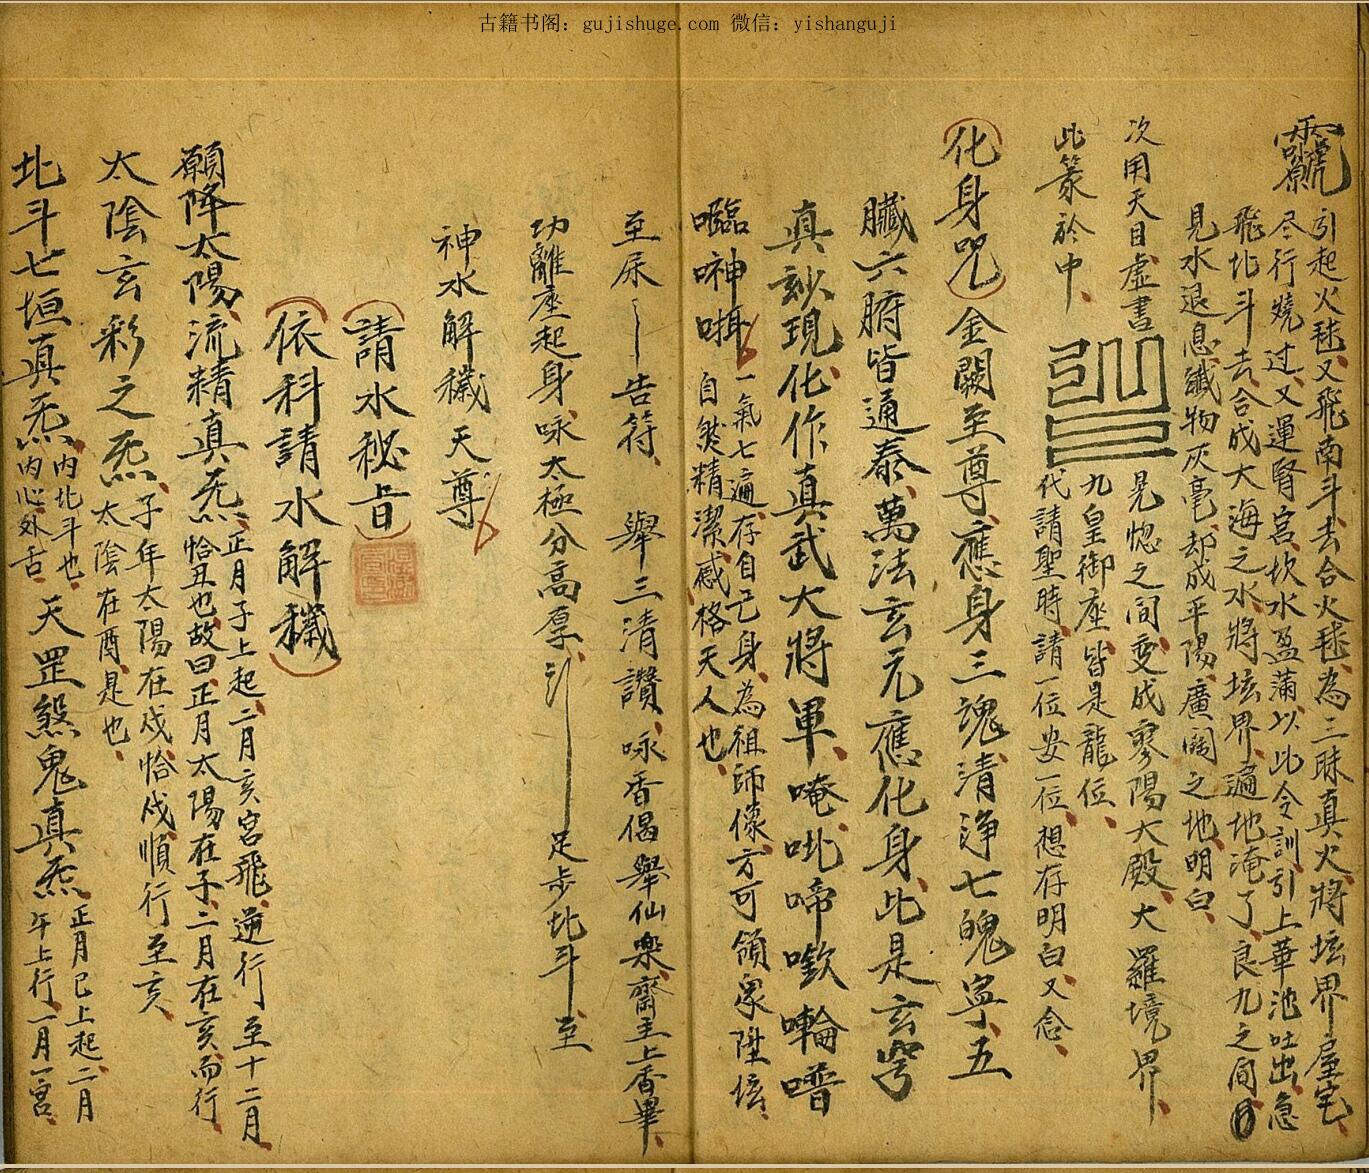 古籍书阁：gujishuge.com 微信：yishanguji
引起火毬、又飛南斗去合火毬、為三昧真火、將坛界屋宅、
尽行燒过、又運腎宮坎水盈滿、以此令訓引上華池吐出、急
飛北斗去、合成大海之水、將坛界、遍地淹了、良九之间、
見水退息、纖物灰毫、却成平陽、廣闊之地明白、
次用天目虚書
晃惚之间、变成寥陽大殿、大羅境界、
九皇御座、皆是龍位、
此篆於中、
代請聖時、請一位安一位、想存明白、又念、
化身咒 金闕至尊、應身三魂清淨、七魄寧、五
臟六腑皆通泰、萬法玄元應化身、此是玄穹
真妙現、化作真武大將軍、唵吡啼㘕轮㗔
一氣七遍、存自己身、為祖師像、方可領眾陞坛、
自然精潔、感格天人也、
至尿 告符、 舉三清讚、咏香偈、舉仙楽、齋主上香畢、
功離座起身、咏太極分高厚、 足步北斗 至
神水解穢天尊
請水秘旨
依科請水解穢
願降太陽、流精真炁、正月子上起、二月亥宮飛、逆行至十二月
恰丑也、故曰、正月太陽在子、二月在亥而行
子年太陽在戌、恰戌順行至亥
太陰玄彩之炁、太陰在酉、是也、
北斗七垣真炁、内北斗也、内心外舌、天罡煞鬼真炁、正月巳上起、二月
午上行、一月一宮、